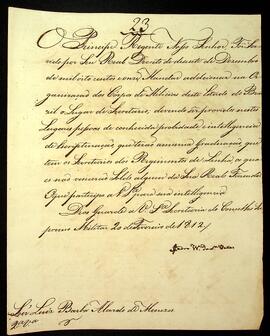 23
O Principe Regente Nosso Senhor Foi Ser
vido por Seu Real Decreto de dezoito de Dezembro
de mil oito centos Mandar addicionar na
Organização dos Corpos de Milicias deste Estado do Bra
zil o Lugar de Secretario, devendo ser provido nestes
Lugares pessoas de conhecida probidade e intelligencia
de Escripturação que terão a mesma Graduação que
tem os Secretarios dos Regimentos de Linha, os quaes
não vencerão Soldo algum da Sua Real Fazenda
O que participo a V. S. para sua intelligencia
Deos Guarde a V. S. Secretaria do Conselho Su
premo Militar 20 de Fevereiro de 1812
Senr Luiz Barba Alardo de Menezes